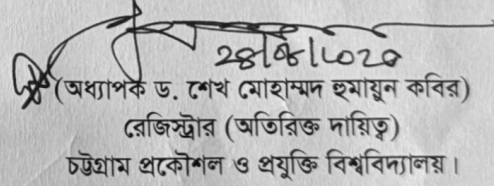 ২৪/৬/২০২০
(অধ্যাপক ড. শেখ মোহাম্মদ হুমায়ুন কবির)
রেজিস্ট্রার (অতিরিক্ত দায়িত্ব)
চট্টগ্রাম প্রকৌশল ও প্রযুক্তি বিশ্ববিদ্যালয়।